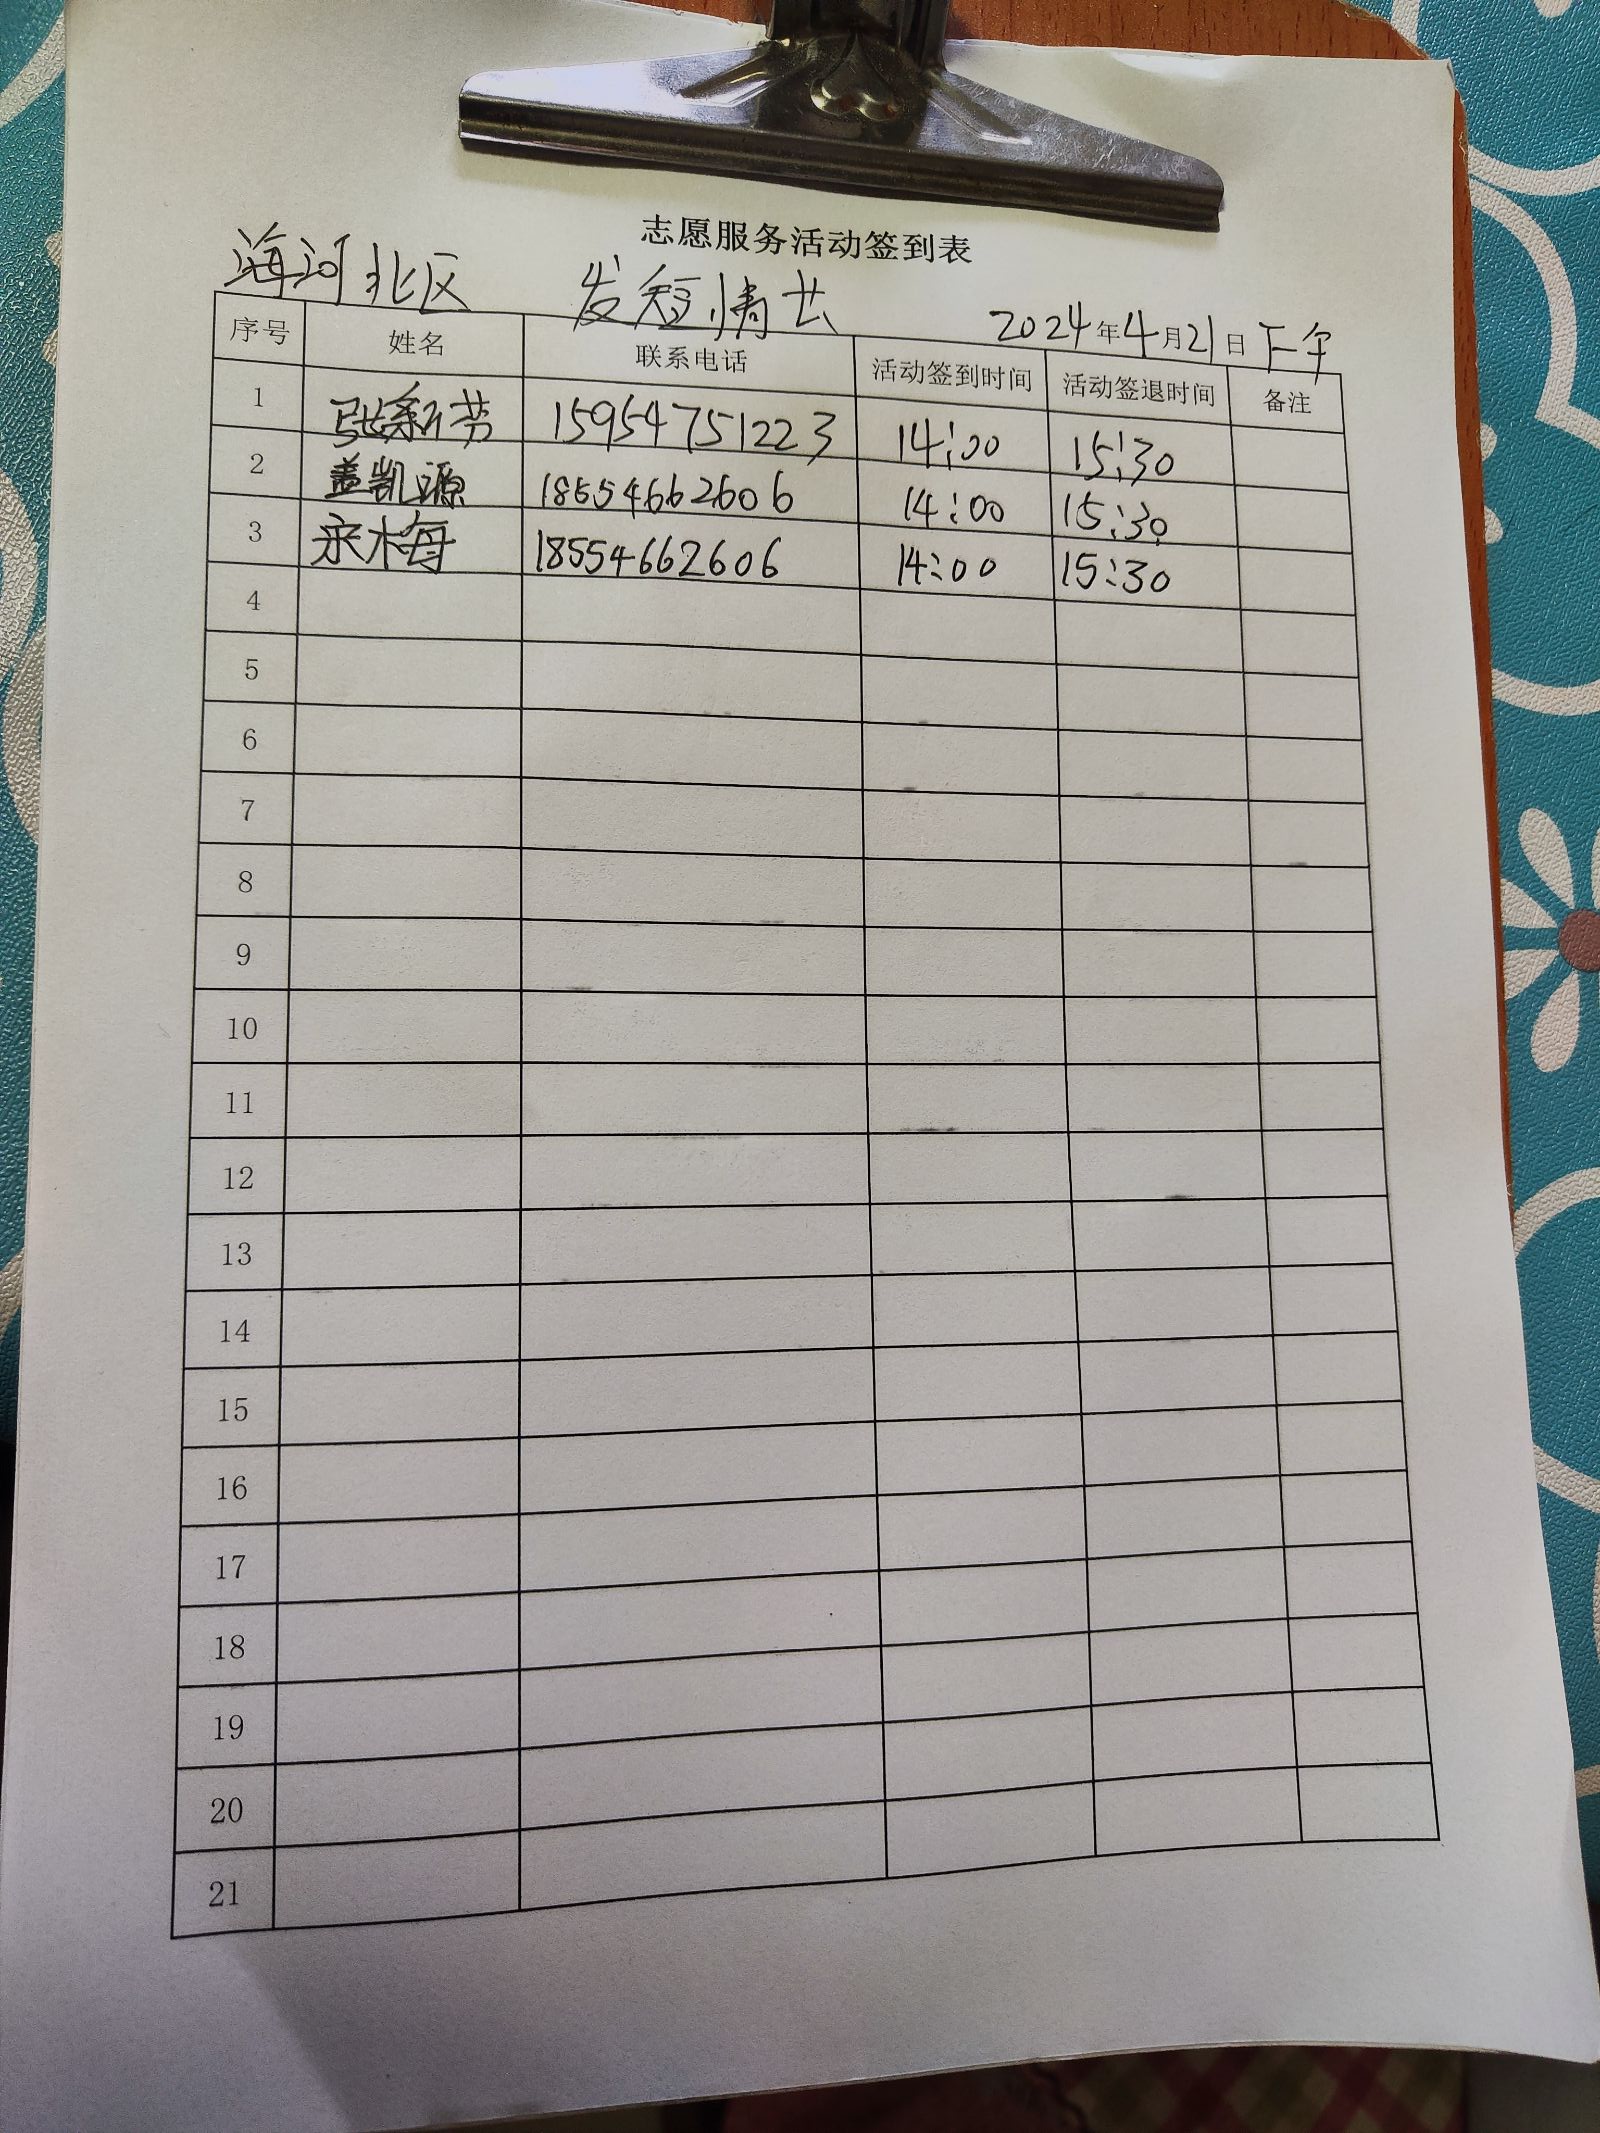 志愿服务活动签到表
海河北区 发短情长 2024年4月21日下午
序号 姓名 联系电话 活动签到时间 活动签退时间 备注
1 张新芳 15954751223 14:00 15:30
2 盖凯源 18554662606 14:00 15:30
3 18554662606 14:00 15:30
4
5
6
7
8
9
10
11
12
13
14
15
16
17
18
19
20
21